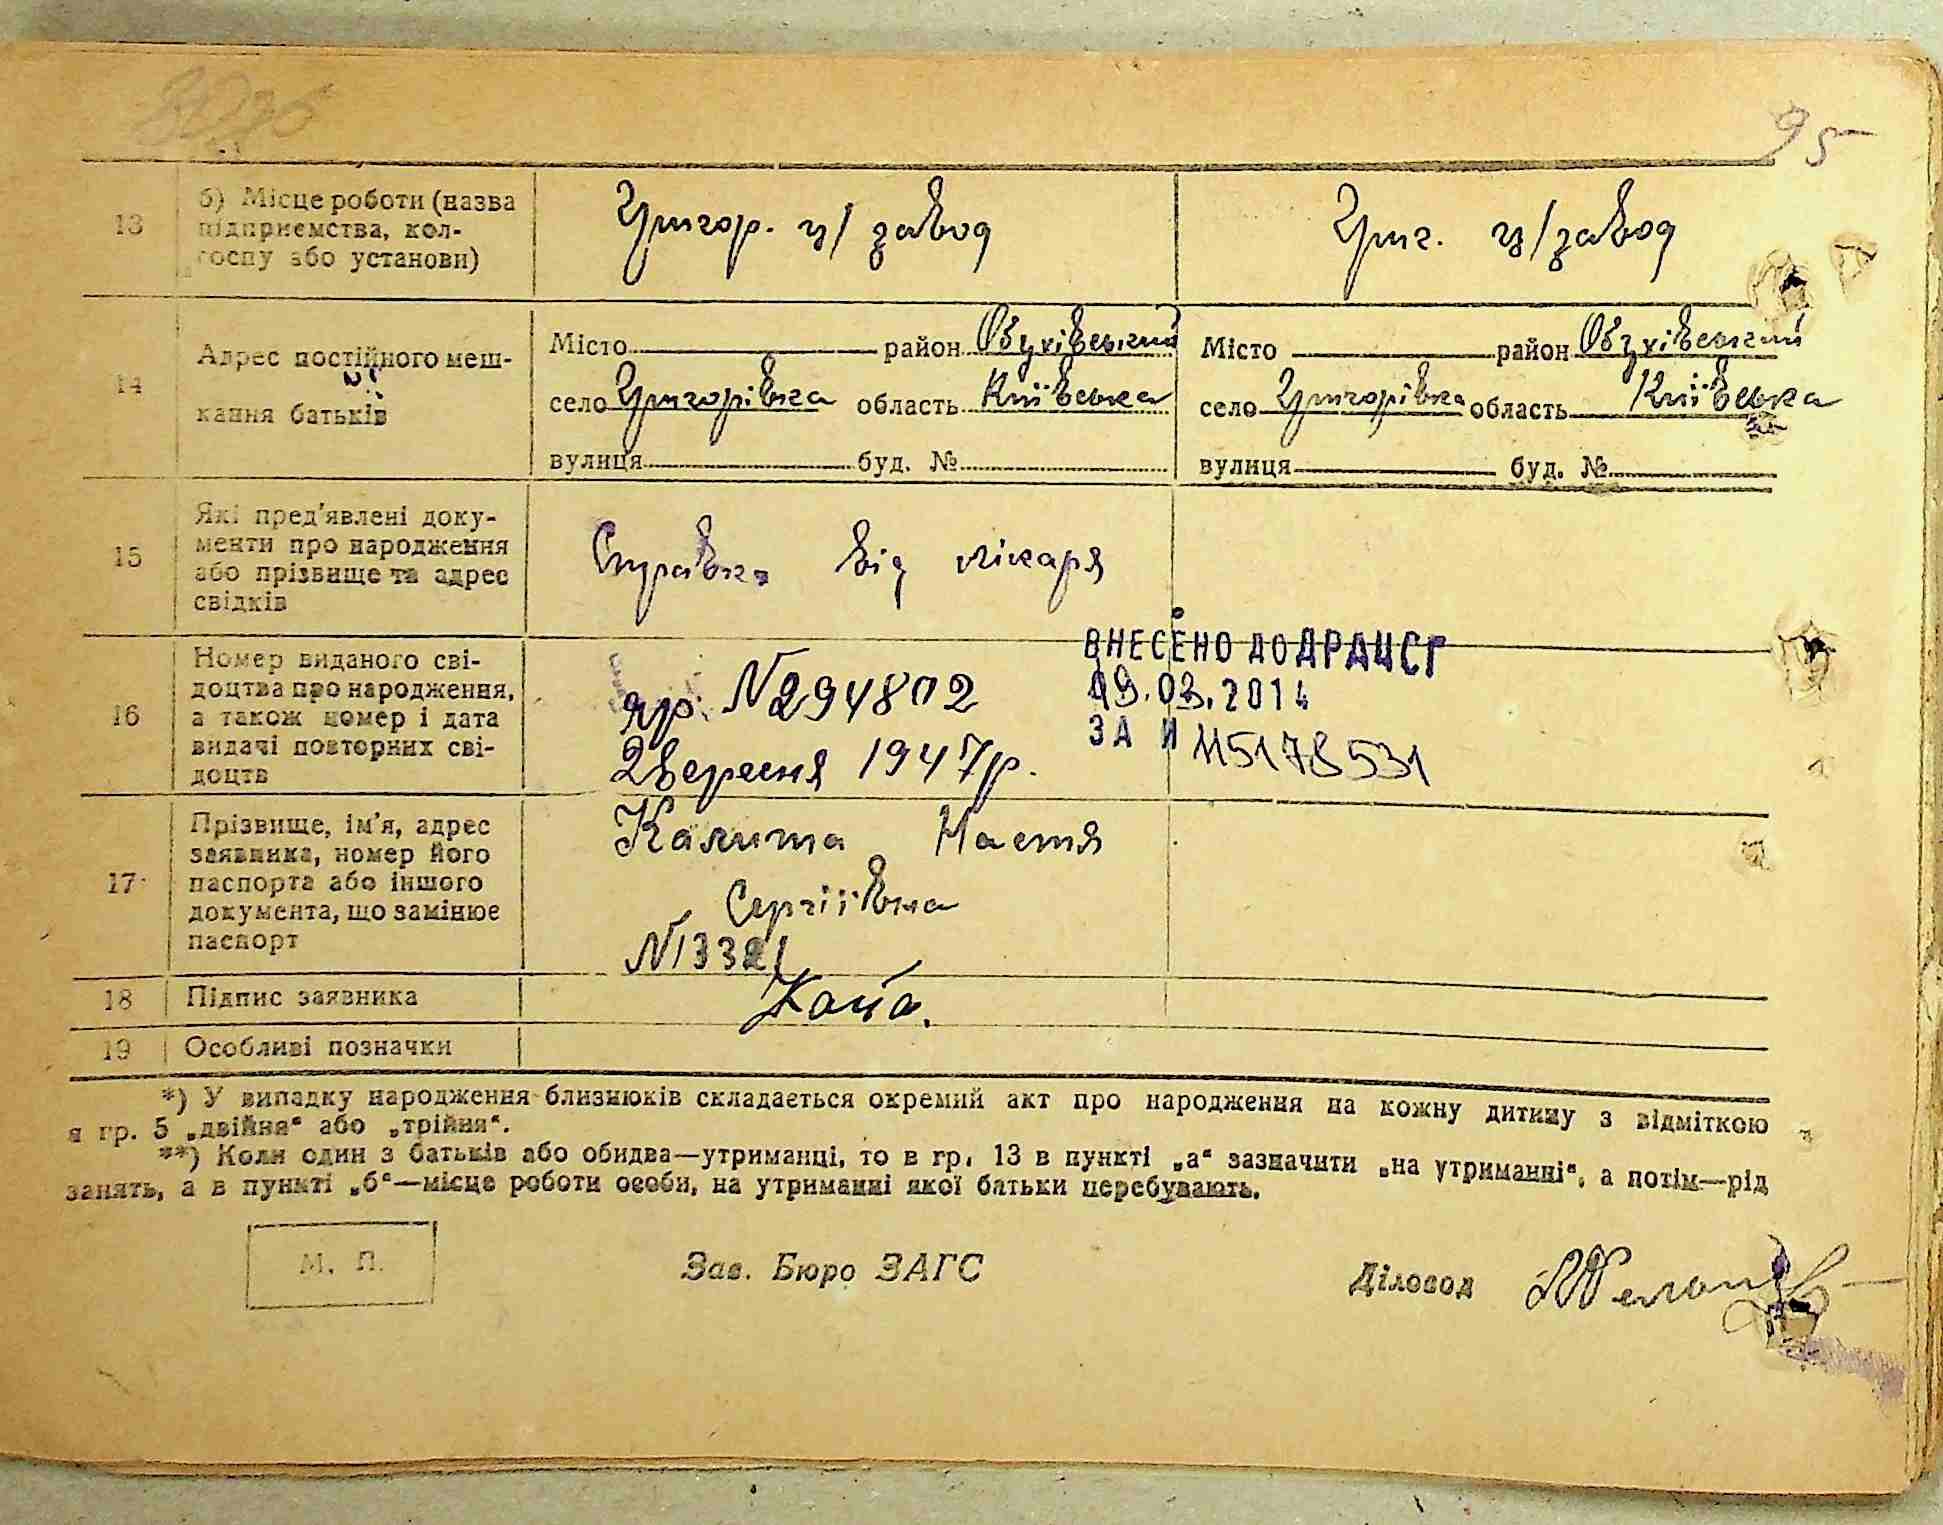 95
13 б) Місце роботи (назва
підприємства, кол-
госпу або установи)
Григор. ц/завод
Григ. ц/завод
14 Адрес постійного меш-
кання батьків
Місто район Обухівський
село Григорівка область Київська
вулиця буд. №
Місто район Обухівський
село Григорівка область Київська
вулиця буд. №
15 Які пред'явлені доку-
менти про народження
або прізвище та адрес
свідків
Справка від лікаря
16 Номер виданого сві-
доцтва про народження,
а також номер і дата
видачі повторних сві-
доцтв
яр. №294802
2 вересня 1947 р.
ВНЕСЕНО ДО ДРАЦСГ
19.03.2014
ЗА И 115178531
17 Прізвище, ім'я, адрес
заявника, номер його
паспорта або іншого
документа, що замінює
паспорт
Калита Настя
Сергіївна
18 Підпис заявника
19 Особливі позначки
*) У випадку народження близнюків складається окремий акт про народження на кожну дитину з відміткою
я гр. 5 „двійня“ або „трійня“.
**) Коли один з батьків або обидва—утриманці, то в гр. 13 в пункті „а“ зазначити „на утриманні“, а потім—рід
занять, а в пункті „б“—місце роботи особи, на утриманні якої батьки перебувають.
М. П.
Зав. Бюро ЗАГС
Діловод